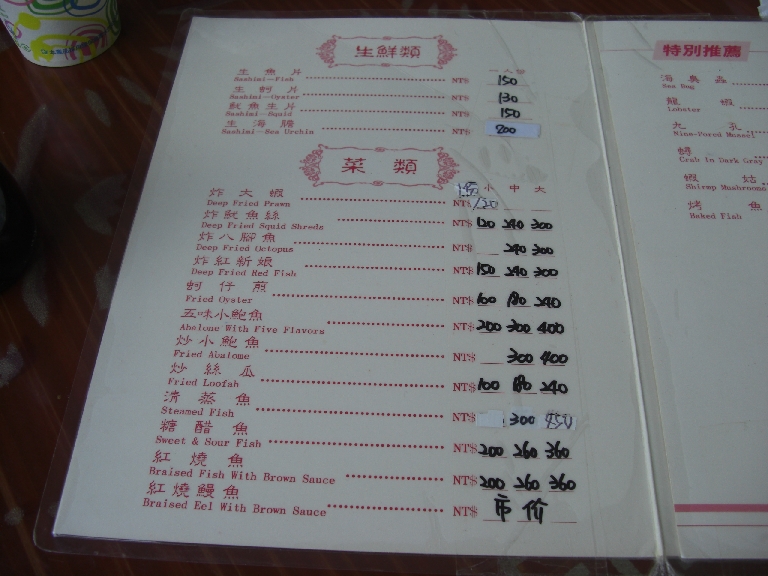 生鮮類
一人份
生魚片 NT$ 150
Sashimi—Fish
生蚵片 NT$ 130
Sashimi—Oyster
魷魚生片 NT$ 150
Sashimi—Squid
生海膽 NT$ 200
Sashimi—Sea Urchin
菜類
小 中 大
炸大蝦 NT$ 120
Deep Fried Prawn
炸魷魚絲 NT$ 120 240 300
Deep Fried Squid Shreds
炸八腳魚 NT$ 240 300
Deep Fried Octopus
炸紅新娘 NT$ 150 240 300
Deep Fried Red Fish
蚵仔煎 NT$ 100 180 240
Fried Oyster
五味小鮑魚 NT$ 200 300 400
Abelone With Five Flavors
炒小鮑魚 NT$ 300 400
Fried Abalome
炒絲瓜 NT$ 100 180 240
Fried Loofah
清蒸魚 NT$ 300 450
Steamed Fish
糖醋魚 NT$ 200 260 360
Sweet & Sour Fish
紅燒魚 NT$ 200 260 360
Braised Fish With Brown Sauce
紅燒鰻魚 NT$ 市价
Braised Eel With Brown Sauce
特別推薦
海臭蟲
Sea Bug
龍蝦
Lobster
九孔
Nine-Pored Mussel
蟳
Crab In Dark Gray
蝦姑
Shirmp Mushrooms
烤魚
Baked Fish